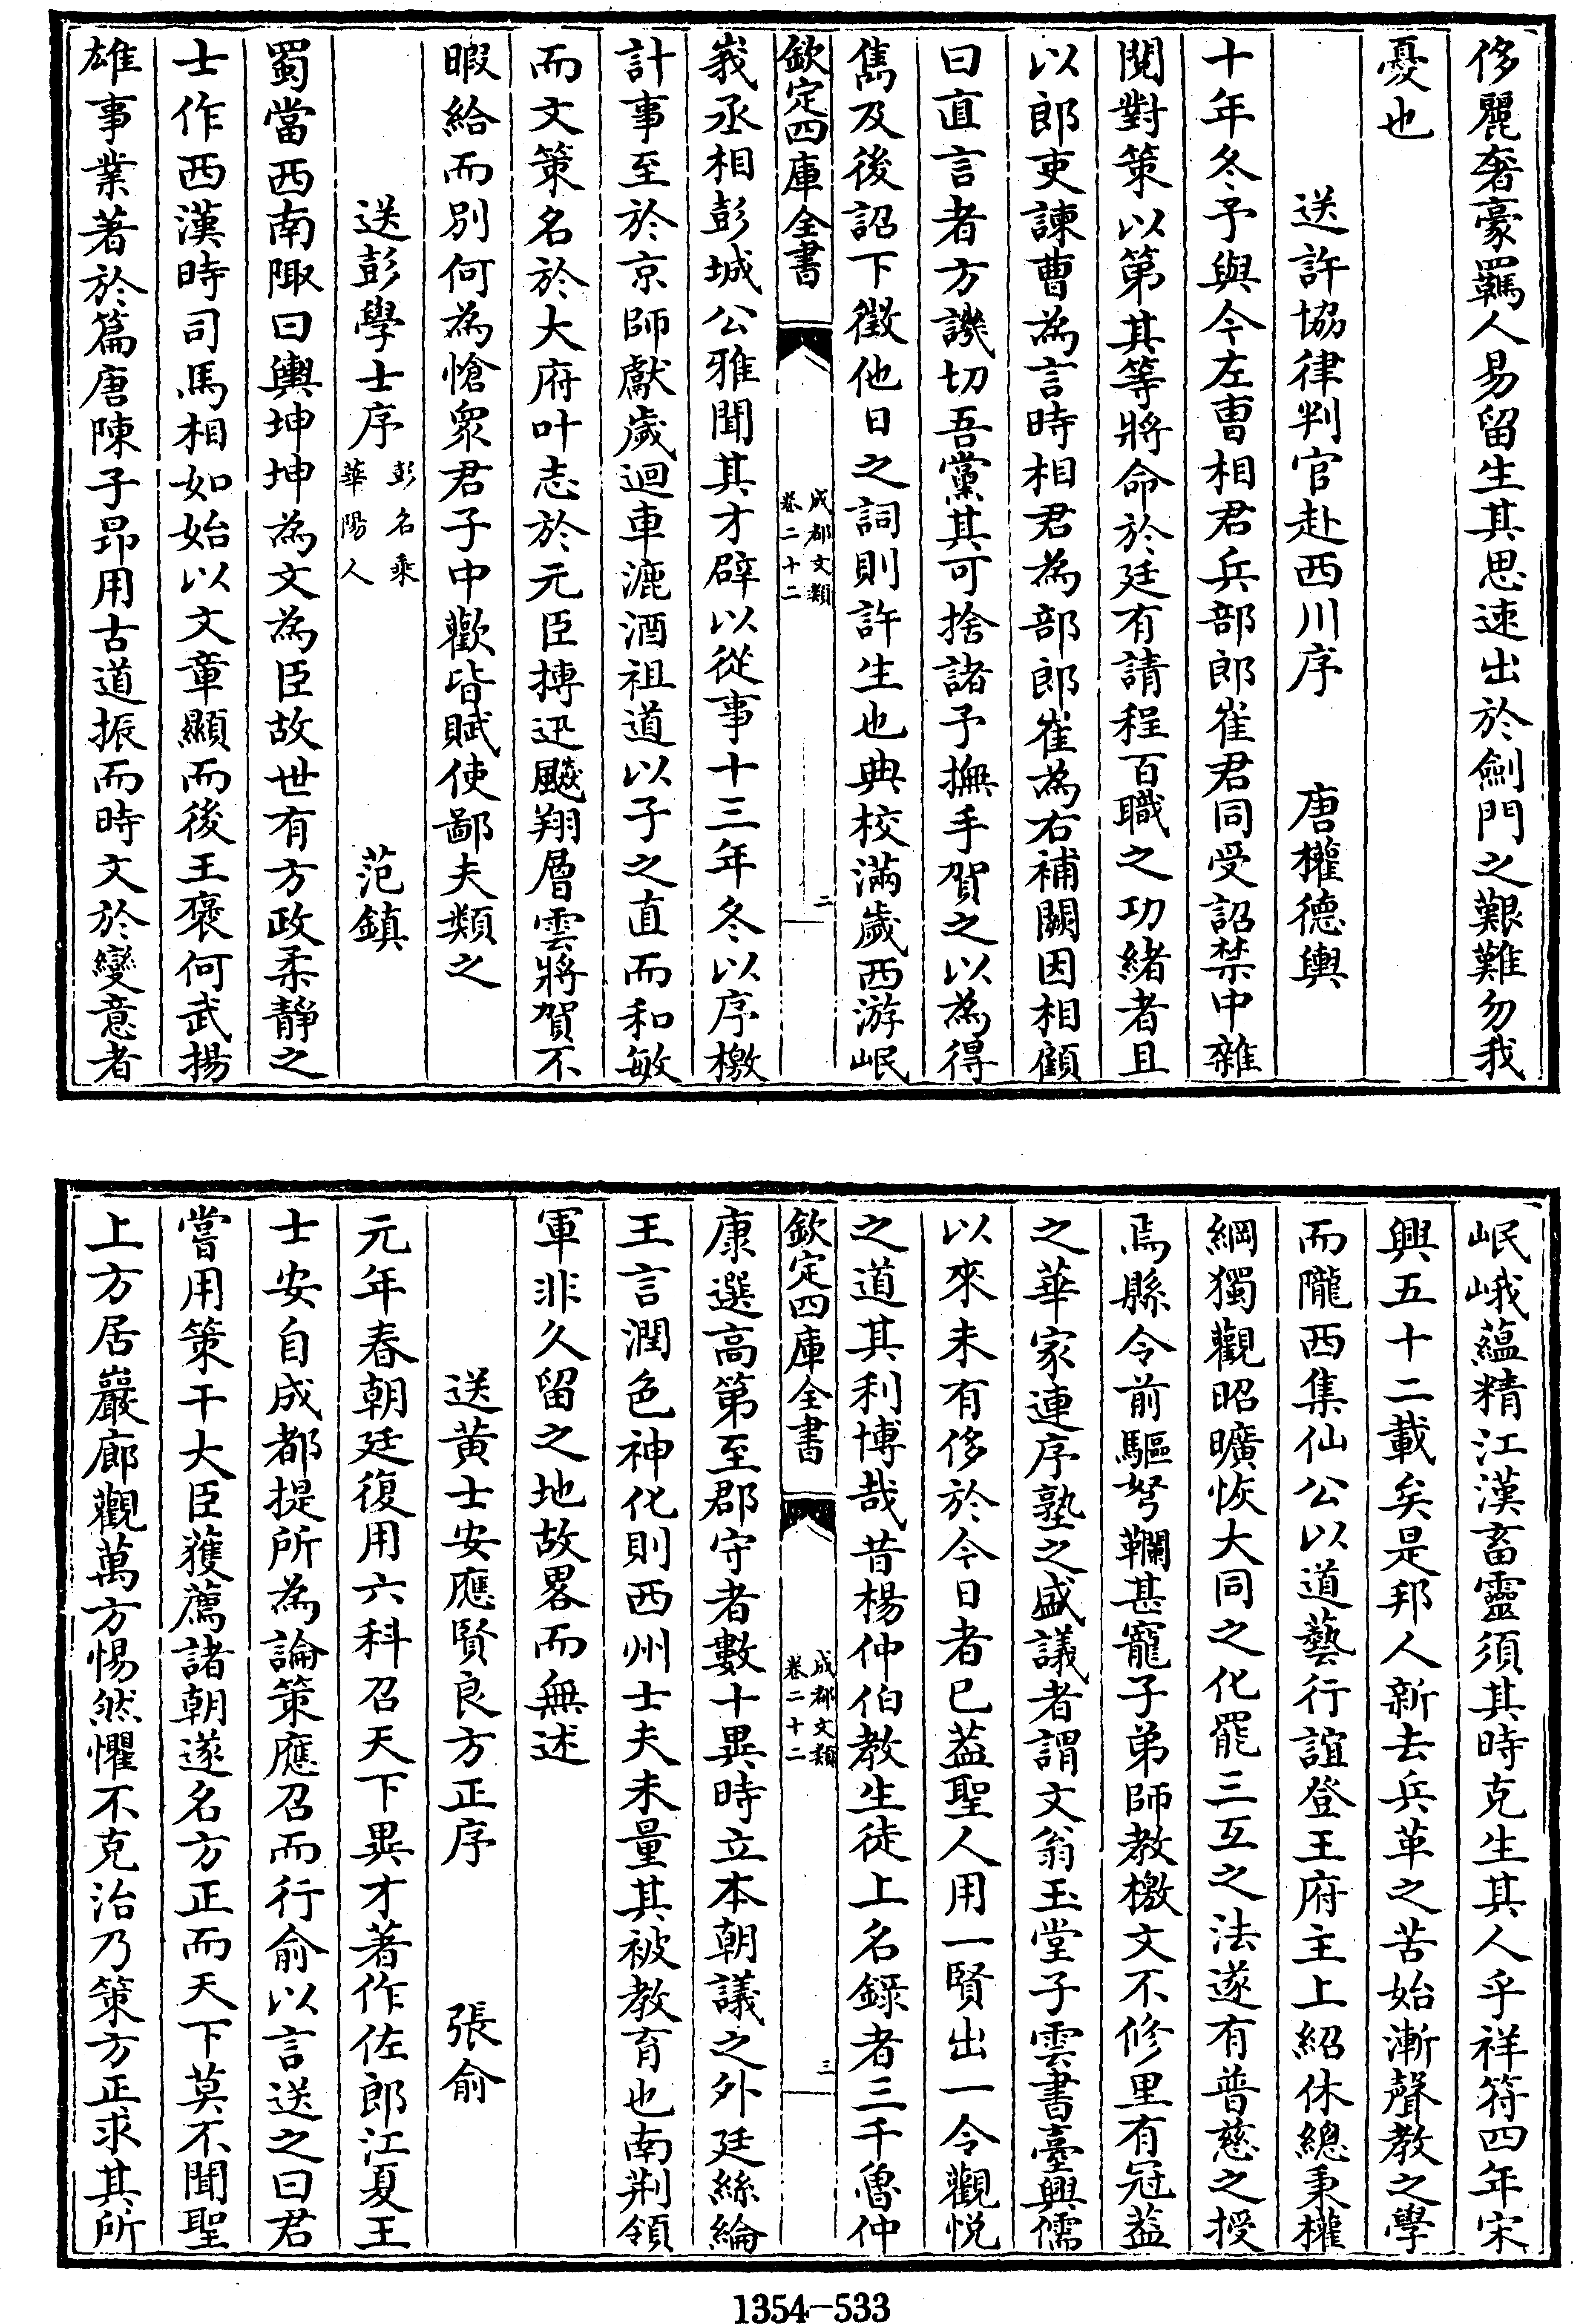 侈麗奢豪羈人易留生其思速出於劍門之艱難勿我
憂也
送許協律判官赴西川序 唐權德輿
十年冬予與今左曹相君兵部郎崔君同受詔禁中雜
閱對策以第其等將命於廷有請程百職之功緒者且
以郎吏諫曹為言時相君為部郎崔為右補闕因相顧
曰直言者方譏切吾黨其可捨諸予撫手賀之以為得
雋及後詔下徵他日之詞則許生也典校滿歲西游岷
欽定四庫全書 成都文類卷二十二 二
峩丞相彭城公雅聞其才辟以從事十三年冬以序檄
計事至於京師獻歲迴車漉酒祖道以子之直而和敏
而文策名於大府叶志於元臣摶迅飈翔層雲將賀不
暇給而別何為愴衆君子中歡皆賦使鄙夫類之
送彭學士序 彭名乘華陽人 范鎮
蜀當西南陬曰輿坤坤為文為臣故世有方政柔靜之
士作西漢時司馬相如始以文章顯而後王褒何武揚
雄事業著於篇唐陳子昂用古道振而時文於變意者
岷峨蘊精江漢畜靈須其時克生其人乎祥符四年宋
興五十二載矣是邦人新去兵革之苦始漸聲教之學
而隴西集仙公以道藝行誼登王府主上紹休總秉權
綱獨觀昭曠恢大同之化罷三互之法遂有普慈之授
焉縣令前驅弩韊甚寵子弟師教檄文不修里有冠葢
之華家連序塾之盛議者謂文翁玉堂子雲書臺興儒
以來未有侈於今日者已葢聖人用一賢出一令觀悅
之道其利博哉昔楊仲伯教生徒上名錄者三千魯仲
欽定四庫全書 成都文類卷二十二 三
康選高第至郡守者數十異時立本朝議之外廷絲綸
王言潤色神化則西州士夫未量其被教育也南荆領
軍非久留之地故畧而無述
送黄士安應賢良方正序 張俞
元年春朝廷復用六科召天下異才著作佐郎江夏王
士安自成都提所為論策應召而行俞以言送之曰君
嘗用策干大臣獲薦諸朝遂名方正而天下莫不聞聖
上方居巖廊觀萬方惕然懼不克治乃策方正求其所
1354-533